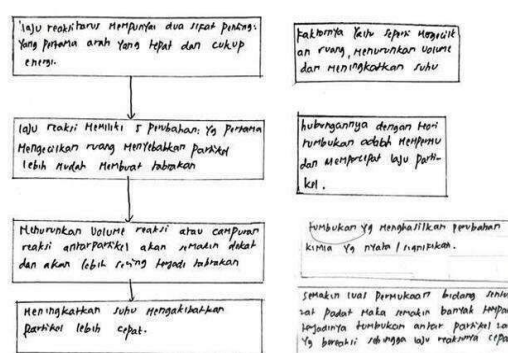 laju reaksi harus mempunyai dua sifat penting:
yang pertama arah yang tepat dan cukup
energi.
laju reaksi memiliki 5 perubahan: yg pertama
mengecilkan ruang menyebabkan partikel
lebih mudah membuat tabrakan
Menurunkan volume reaksi atau campuran
reaksi antarpartikel akan semakin dekat
dan akan lebih sering terjadi tabrakan
Meningkatkan suhu mengakibatkan
partikel lebih cepat.
faktornya yaitu seperti mengecilk
an ruang, menurunkan volume
dan meningkatkan suhu
hubungannya dengan teori
tumbukan adalah mempermu
dan mempercepat laju parti-
kel.
tumbukan yg menghasilkan perubahan
kimia yg nyata / signifikan.
semakin luas permukaan bidang sentu
zat padat maka semakin banyak tempa
terjadinya tumbukan antar partikel za
yg bereaksi sehingga laju reaksinya cepa